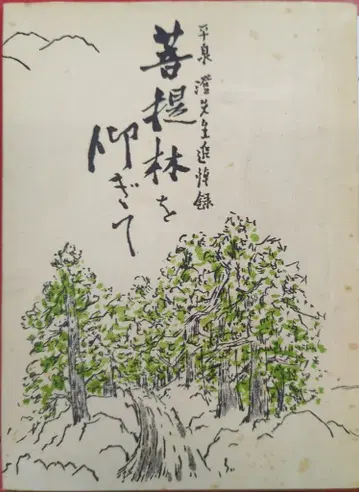 平泉澄先生追悼録
菩提林を
仰ぎて